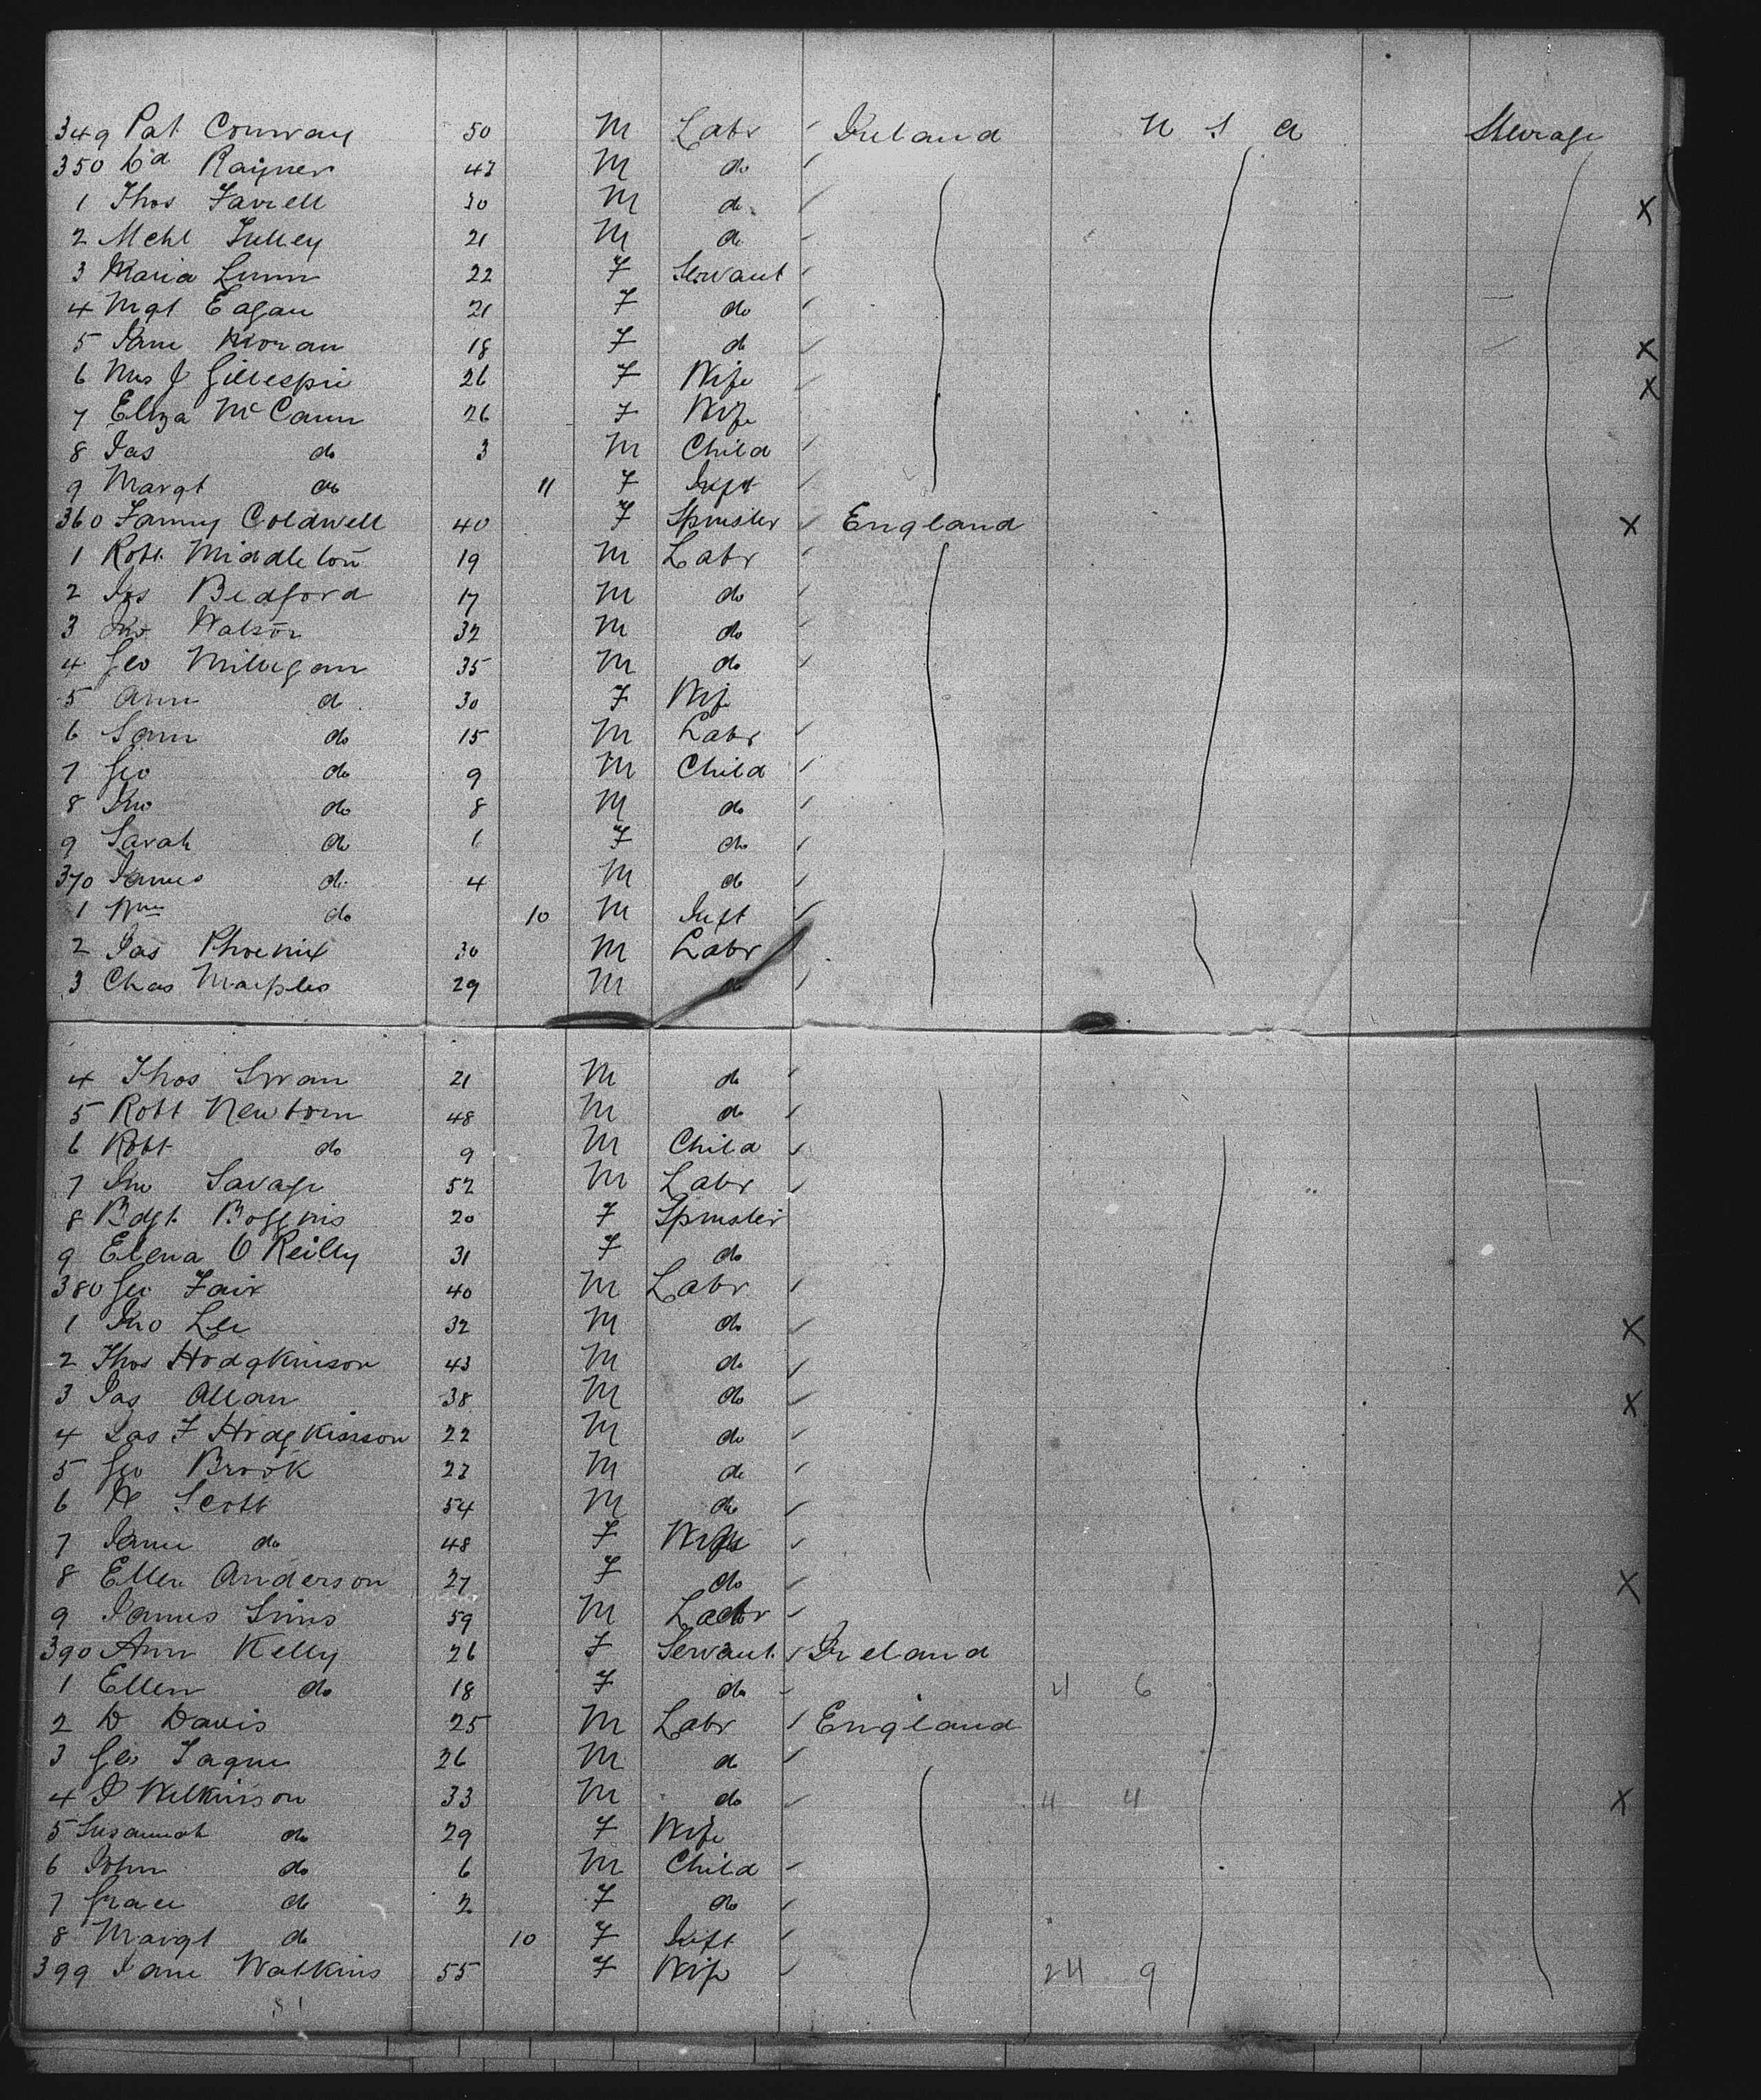 349 Pat Conway 50 M Labr Ireland U S A Steerage
350 Ed Rayner 43 M do
1 Thos Farrell 30 M do X
2 Mchl Tulley 21 M do
3 Maria Lunn 22 F Servant
4 Mgt Eagan 21 F do
5 Jane Moran 18 F do X
6 Mrs J Gillespie 26 F Wife X
7 Eliza McCann 26 F Wife
8 Jas do 3 M Child
9 Margt do 11 F Inft
360 Fanny Coldwell 40 F Spinster England X
1 Robt Middleton 19 M Labr
2 Jos Bedford 17 M do
3 Jno Watson 32 M do
4 Geo Milligan 35 M do
5 Ann do 30 F Wife
6 Sam do 15 M Labr
7 Geo do 9 M Child
8 Jno do 8 M do
9 Sarah do 6 F do
370 James do 4 M do
1 Wm do 10 M Inft
2 Jas Phoenix 30 M Labr
3 Chas Marples 29 M do
4 Thos Swan 21 M do
5 Robt Newtom 48 M do
6 Robt do 9 M Child
7 Jno Savage 52 M Labr
8 Bdgt Boggins 20 F Spinster
9 Elena O Reilly 31 F do
380 Geo Fair 40 M Labr
1 Jno Lee 32 M do X
2 Thos Hodgkinson 43 M do
3 Jas Allan 38 M do X
4 Jas F Hodgkinson 22 M do
5 Geo Brook 27 M do
6 Scott 54 M do
7 Jane do 48 F Wife
8 Ellen Anderson 27 F do X
9 James Sims 59 M Labr
390 Ann Kelly 26 F Servant Ireland
1 Ellen do 18 F do 4 6
2 D Davis 25 M Labr England
3 Geo 26 M do
4 J Wilkinson 33 M do 4 4 X
5 Susannah do 29 F Wife
6 John do 6 M Child
7 Grace do 2 F do
8 Margt do 10 F Inft
399 Jane Watkins 55 F Wife 24 9